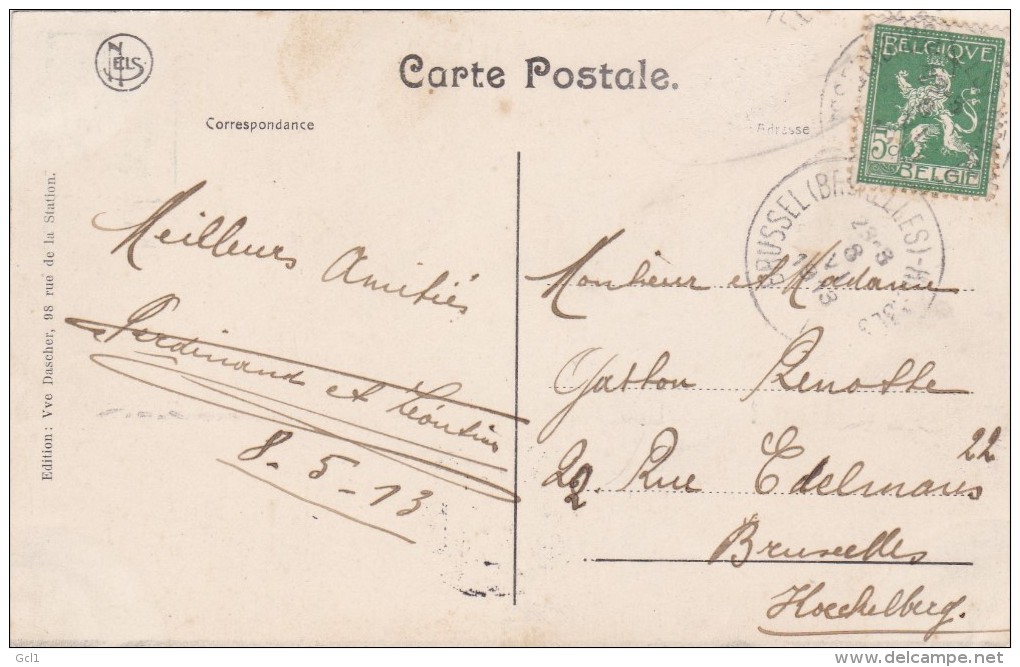 NELS
Carte Postale.
Correspondance
Adresse
BELGIQUE
5c
BELGIË
Edition: Vve Dascher, 98 rue de la Station.
BRUSSEL (BRUXELLES)
8 V
1913
Meilleurs Amitiés
Ferdinand et Léontine
8-5-13
Monsieur et Madame
Gaston Renotte
22. Rue Edelmans 22
Bruxelles
Koeckelberg.
Gcl1
delcampe.net